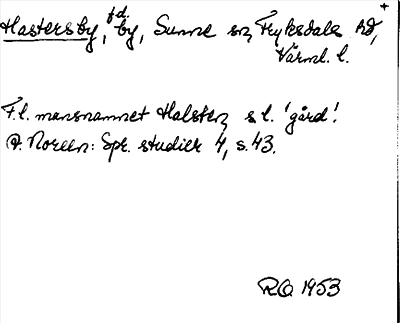 +
Hastersby, fd. by, Sunne sn, Fryksdals hd,
Värml. l.
F.l. mansnamnet Halsten, s l. 'gård'.
A. Noreen: Spr. studier 4, s. 43.
RO 1953